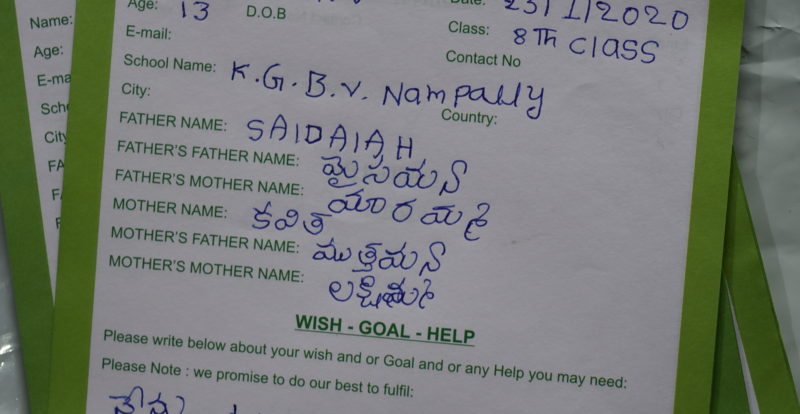 Name:
Age:
E-ma
Sch
City
FA
F
Age: 13 D.O.B Date: 23/1/2020
E-mail: Class: 8Th Class
Contact No
School Name: K.G.B.V. Nampally
City: Country:
FATHER NAME: SAIDAIAH
FATHER'S FATHER NAME:
FATHER'S MOTHER NAME:
MOTHER NAME: కవిత
MOTHER'S FATHER NAME:
MOTHER'S MOTHER NAME:
WISH - GOAL - HELP
Please write below about your wish and or Goal and or any Help you may need:
Please Note : we promise to do our best to fulfil: